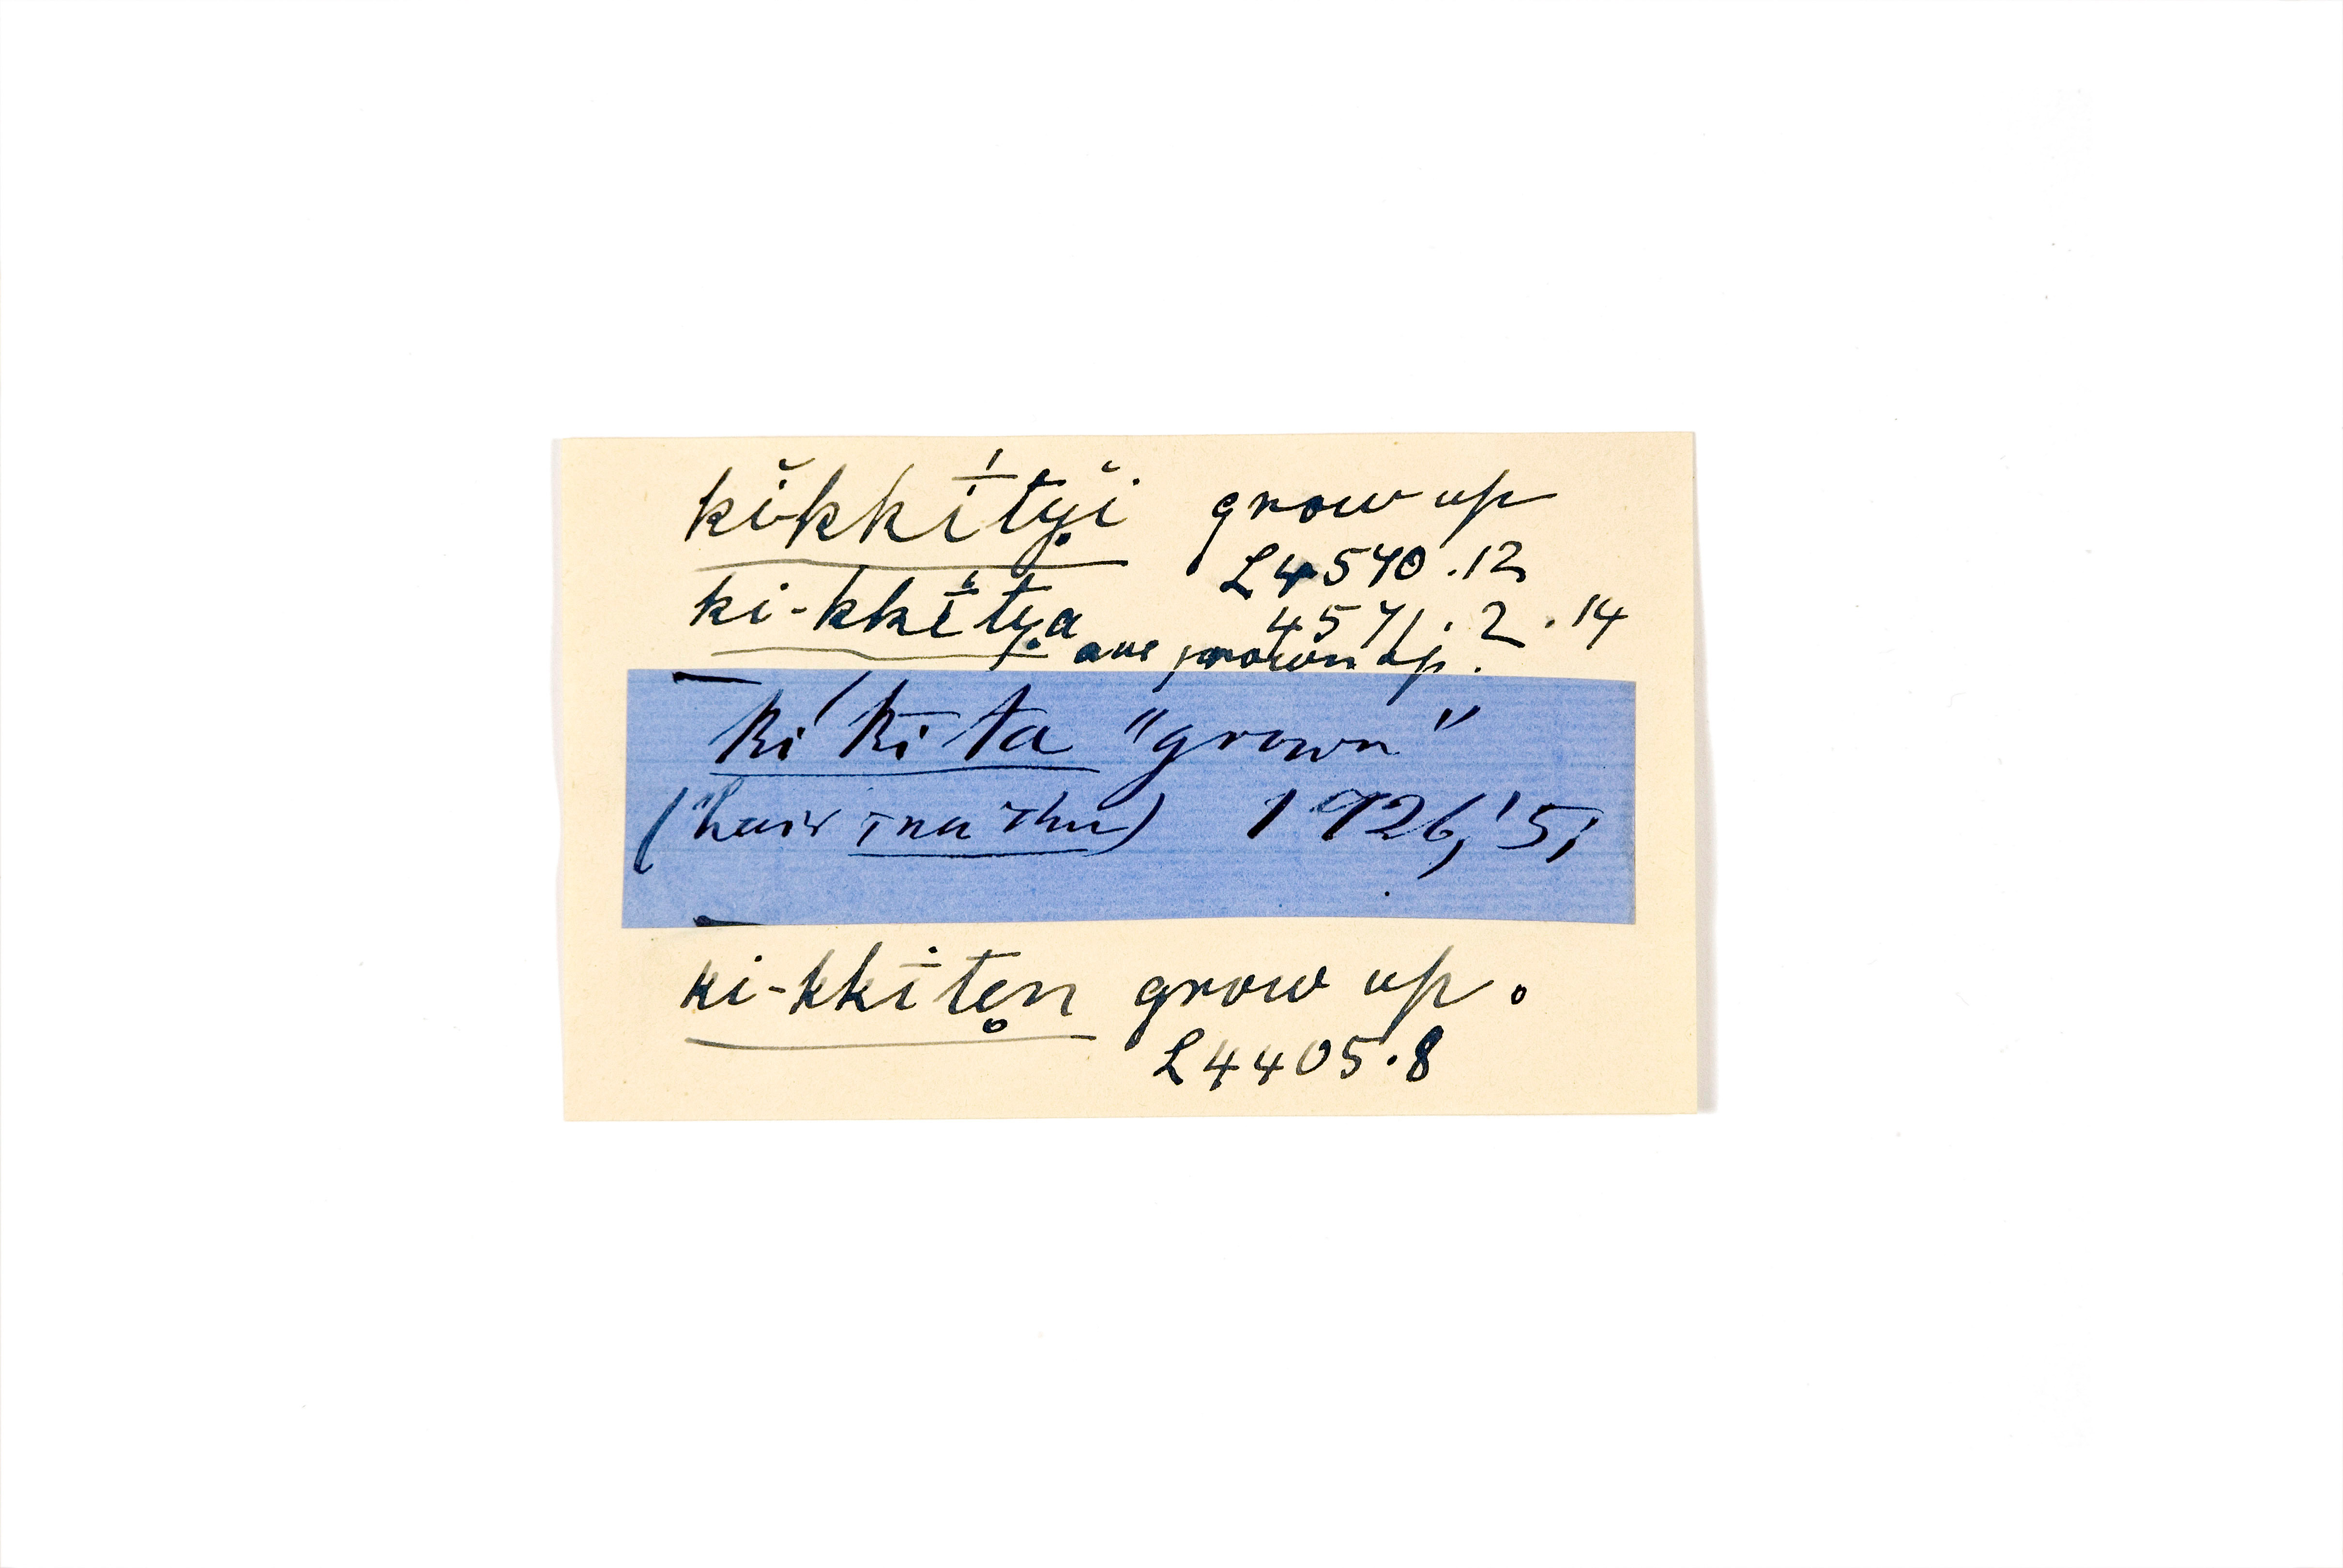 kĭkkī́tyĭ grow up
L4540.12
ki-kkī́tya 4571.2.14
are grown up.
ki kī ta "grown"
(hair) 1926,'5,
ki-kkīten grow up.
L4405.8